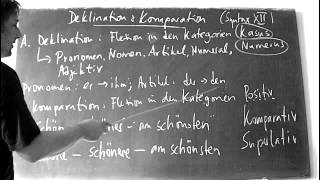 Deklination & Komparation (Syntax XII)
A. Deklination: Flexion in den Kategorien Kasus
Numerus
↳ Pronomen, Nomen, Artikel, Numeral,
Adjektiv
Pronomen: er → ihm; Artikel: des → den
Komparation: Flexion in den Kategorien
Positiv
Komparativ
Supulativ
am schönsten
schönere — am schönsten